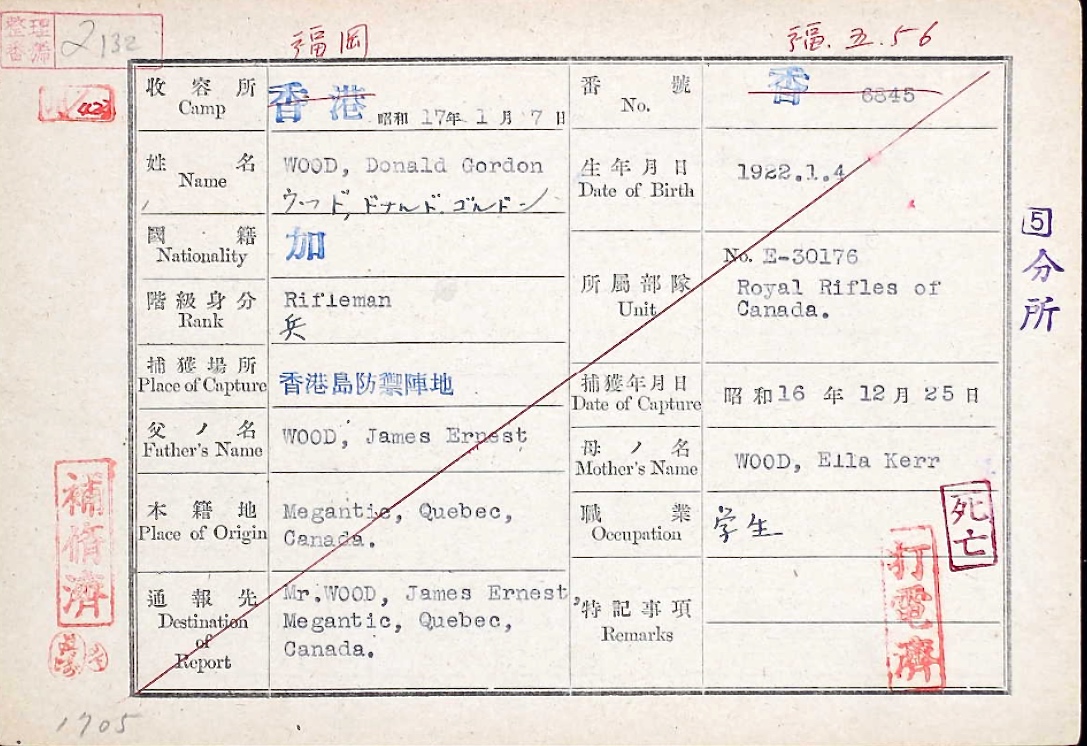 整理番號 2132
福岡
福.五.56
423
收容所 Camp
香港 昭和17年1月7日
番號 No.
香 6845
姓名 Name
WOOD, Donald Gordon
ウッド, ドナルド. ゴルドン
生年月日 Date of Birth
1922.1.4
國籍 Nationality
加
階級身分 Rank
Rifleman
兵
所屬部隊 Unit
No. E-30176
Royal Rifles of
Canada.
5
分
所
捕獲場所 Place of Capture
香港島防禦陣地
捕獲年月日 Date of Capture
昭和16年12月25日
父ノ名 Father's Name
WOOD, James Ernest
母ノ名 Mother's Name
WOOD, Ella Kerr
本籍地 Place of Origin
Megantic, Quebec,
Canada.
職業 Occupation
学生
死亡
通報先 Destination of Report
Mr.WOOD, James Ernest,
Megantic, Quebec,
Canada.
特記事項 Remarks
打電濟
補脩濟
1705